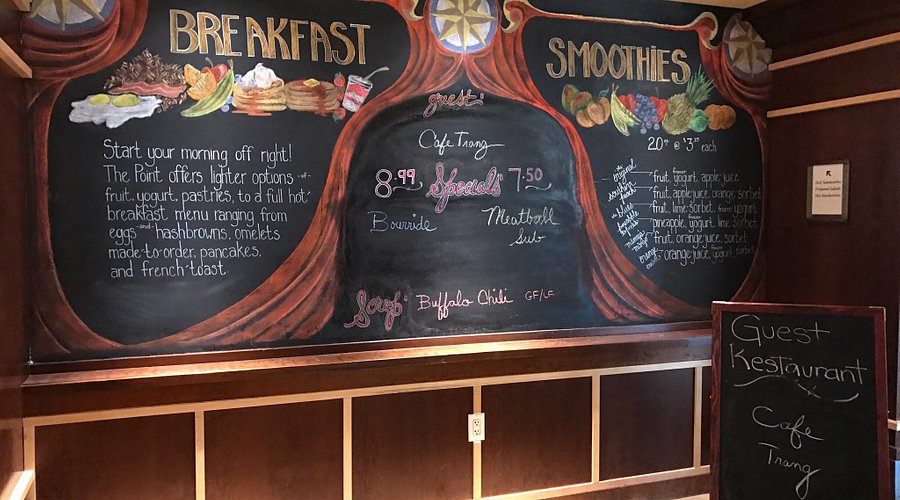 BREAKFAST
Start your morning off right!
The Point offers lighter options -of-
fruit, yogurt, pastries, to a full hot
breakfast menu ranging from
eggs -and- hashbrowns, omelets
made-to-order, pancakes,
and french toast.
guest:
Cafe Trang
8.99 Specials: 7.50
Bowride
Meatball
Sub
Soup: Buffalo Chili GF/LF
SMOOTHIES
20oz @ $3.25 each
the original
fruit, frozen yogurt, apple juice
fruit, apple juice, orange sorbet
fruit, lime sorbet, frozen yogurt
pineapple, yogurt, lime sorbet
fruit, orange juice, sorbet
orange juice, yogurt, sorbet
Grill Sandwiches
Prepared Salads
Hot Sandwiches
Guest
Restaurant
Cafe
Trang